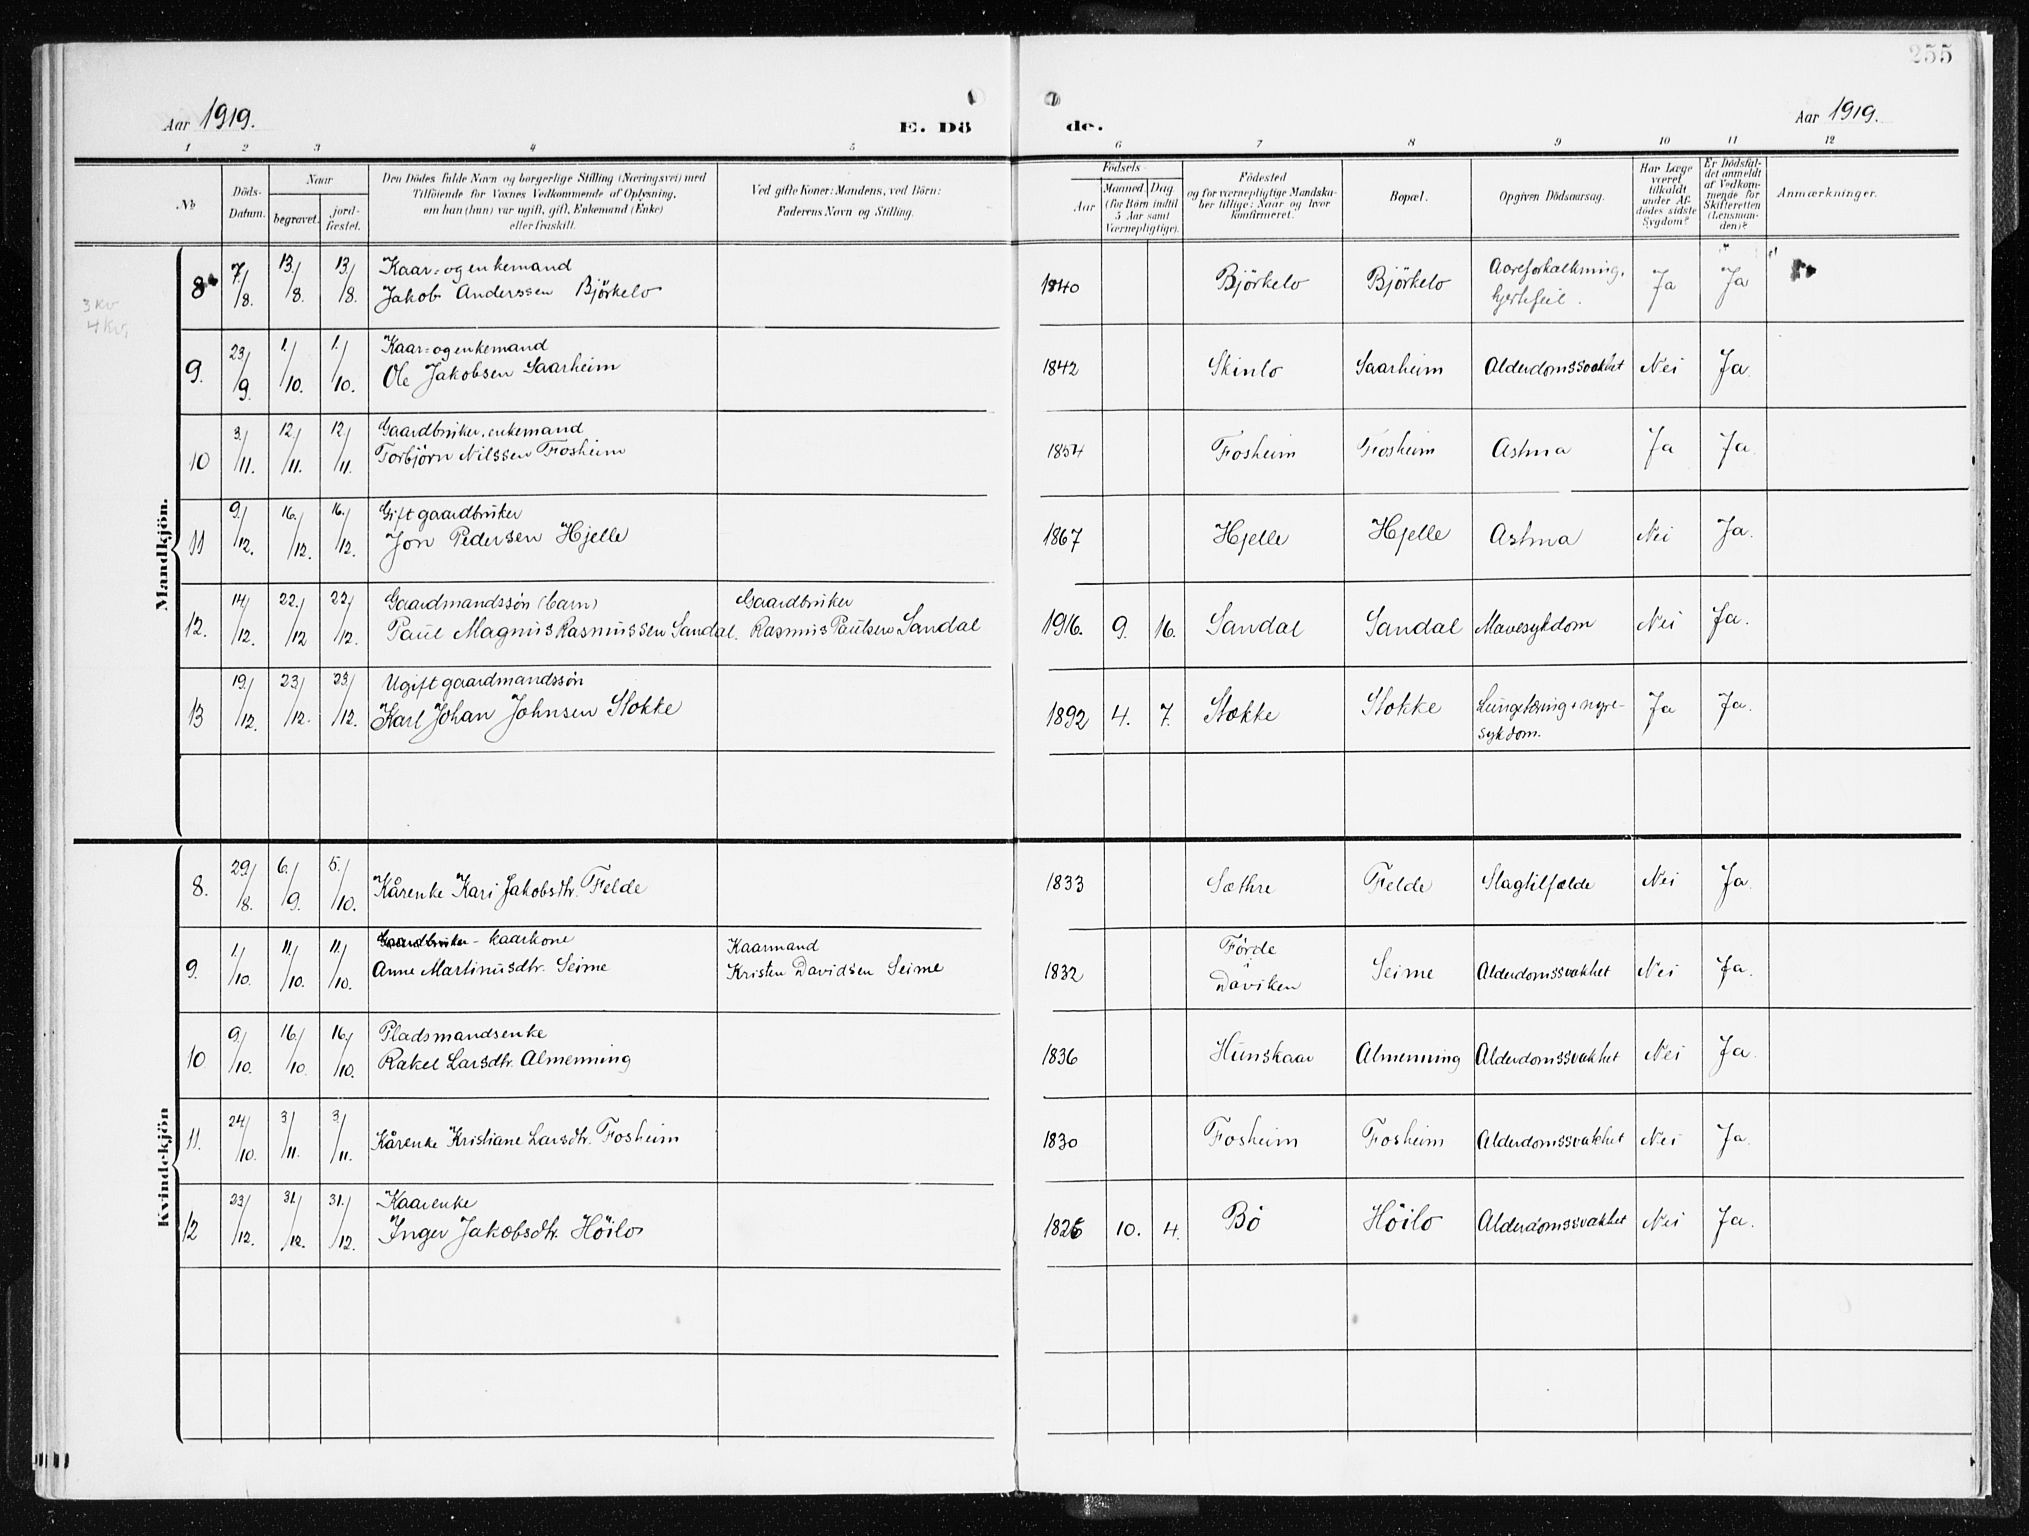 255
Aar 1919.
E. Dö
de.
Aar 1919.
1 2 3 4 5 6 7 8 9 10 11 12
No
Döds-
Datum.
Naar
begravet.
jord-
fæstet.
Den Dödes fulde Navn og borgerlige Stilling (Næringsvei) med
Tilföiende for Voxnes Vedkommende af Oplysning,
om han (hun) var ugift, gift, Enkemand (Enke)
eller fraskilt.
Ved gifte Koner: Mandens, ved Börn:
Faderens Navn og Stilling.
Födsels-
Aar
Maaned
(for Börn indtil
5 Aar samt
Værnepligtige).
Dag
Födested
og for værnepligtige Mandska-
ber tillige: Naar og hvor
konfirmeret.
Bopæl.
Opgiven Dödsaarsag.
Har Læge
været
tilkaldt
under Af-
dödes sidste
Sygdom?
Er Dödsfal-
det anmeldt
af Vedkom-
mende for
Skifteretten
(Lensman-
den)?
Anmærkninger.
3 kv
4 kv,
Mandkjön.
8 7/8. 13./8. 13/8. Kaar- og enkemand
Jakob Anderssen Björkelo 1840 Björkelo Björkelo Aareforkalkning, Ja Ja
hjertefeil.
9. 23/9. 1./10. 1./10. Kaar- og enkemand
Ole Jakobsen Saarheim 1842 Skinlo Saarheim Alderdomssvakhet Nei Ja.
10 3./11. 12./11. 12./11. Gaardbruker, enkemand
Torbjörn Nilssen Fosheim 1854 Fosheim Fosheim Astma Ja Ja.
11 9./12. 16./12. 16./12. Gift gaardbruker
Jon Pedersen Hjelle 1867 Hjelle Hjelle Astma Nei Ja.
12. 14/12. 22./12 22/12. Gaardmandssön (barn) Gaardbruker
Paul Magnus Rasmussen Sandal. Rasmus Paulsen Sandal 1916. 9. 16. Sandal Sandal Mavesykdom Nei Ja.
13 19./12. 23/12. 23./12. Ugift gaardmandssön
Karl Johan Johnsen Stokke 1892 4. 7. Stokke Stokke Lungetæring + nyre- Ja Ja.
sykdom.
Kvindekjön
8. 29/8. 6./9. 5./10. Kårenke Kari Jakobsdtr. Felde 1833 Sæthre Felde Slagtilfælde Nei Ja.
9. 1./10. 11./10. 11./10. Gaardbruker - kaarkone Kaarmand
Anne Martinusdtr. Seime Kristen Davidsen Seime 1832 Förde
i
Daviken Seime Alderdomssvakhet Nei Ja.
10 9./10. 16./10. 16./10. Pladsmandsenke
Rakel Larsdtr. Almenning 1836 Hunskaar Almenning Alderdomssvakhet Nei Ja.
11. 24/10. 3/11. 3./11. Kårenke Kristiane Larsdtr. Fosheim 1830 Fosheim Fosheim Alderdomssvakhet Nei Ja.
12 23/12. 31./12. 31./12. Kaarenke
Inger Jakobsdtr. Höilo 1826 10. 4. Bö Höilo Alderdomssvakhet Nei Ja.